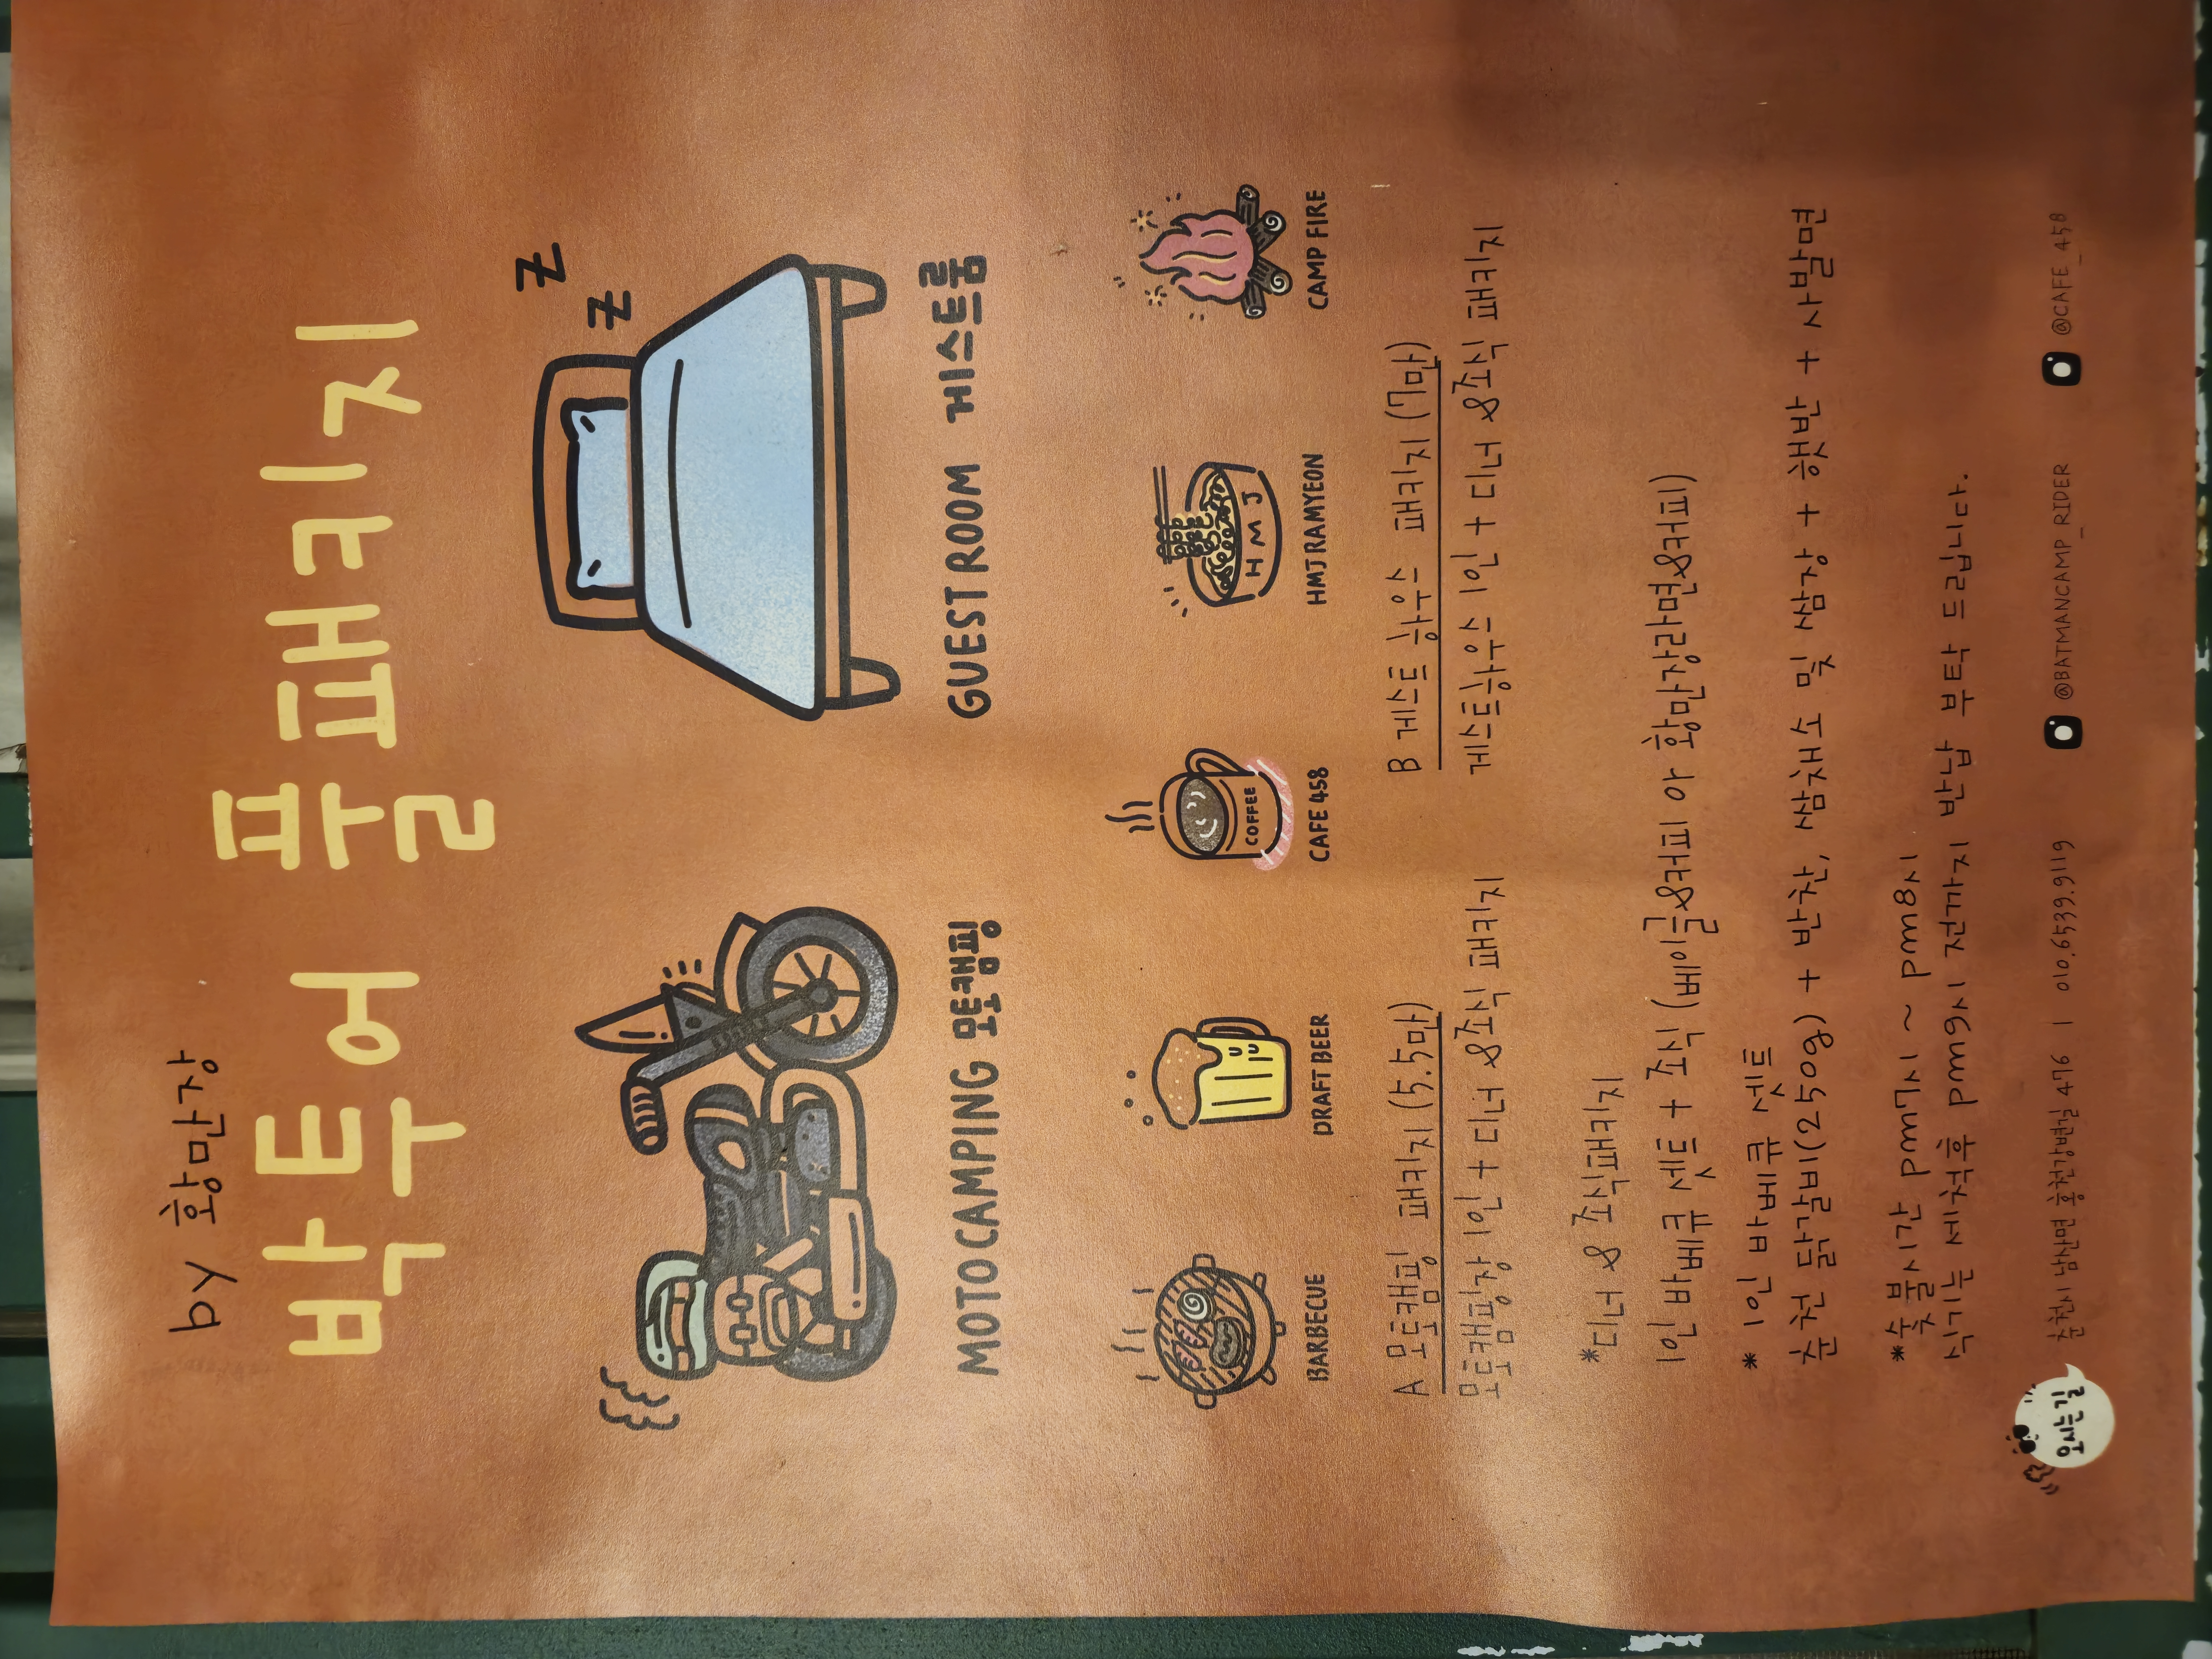 by 황만장
박투어 풀패키지
Z
Z
MOTOCAMPING 모토캠핑
GUEST ROOM 게스트룸
BARBECUE
DRAFT BEER
COFFEE
CAFE 458
HMJ
HMJ RAMYEON
CAMP FIRE
A 모토캠핑 패키지 (5.5만)
모토캠핑장 1인 + 디너 & 조식 패키지
B 게스트 하우스 패키지 (7만)
게스트하우스 1인 + 디너 & 조식 패키지
*디너 & 조식패키지
1인 바베큐 셋트 + 조식 (베이글&커피 or 황만장라면&커피)
* 1인 바베큐 셋트
춘천 닭갈비(250g) + 반찬, 쌈채소 및 쌈장 + 햇반 + 사발면
*숯불시간 pm7시 ~ pm8시
식기는 세척후 pm9시 전까지 반납 부탁 드립니다.
오시는길
춘천시 남산면 홍천강변길 476 | 010.6539.9119
@BATMANCAMP_RIDER
@CAFE_458